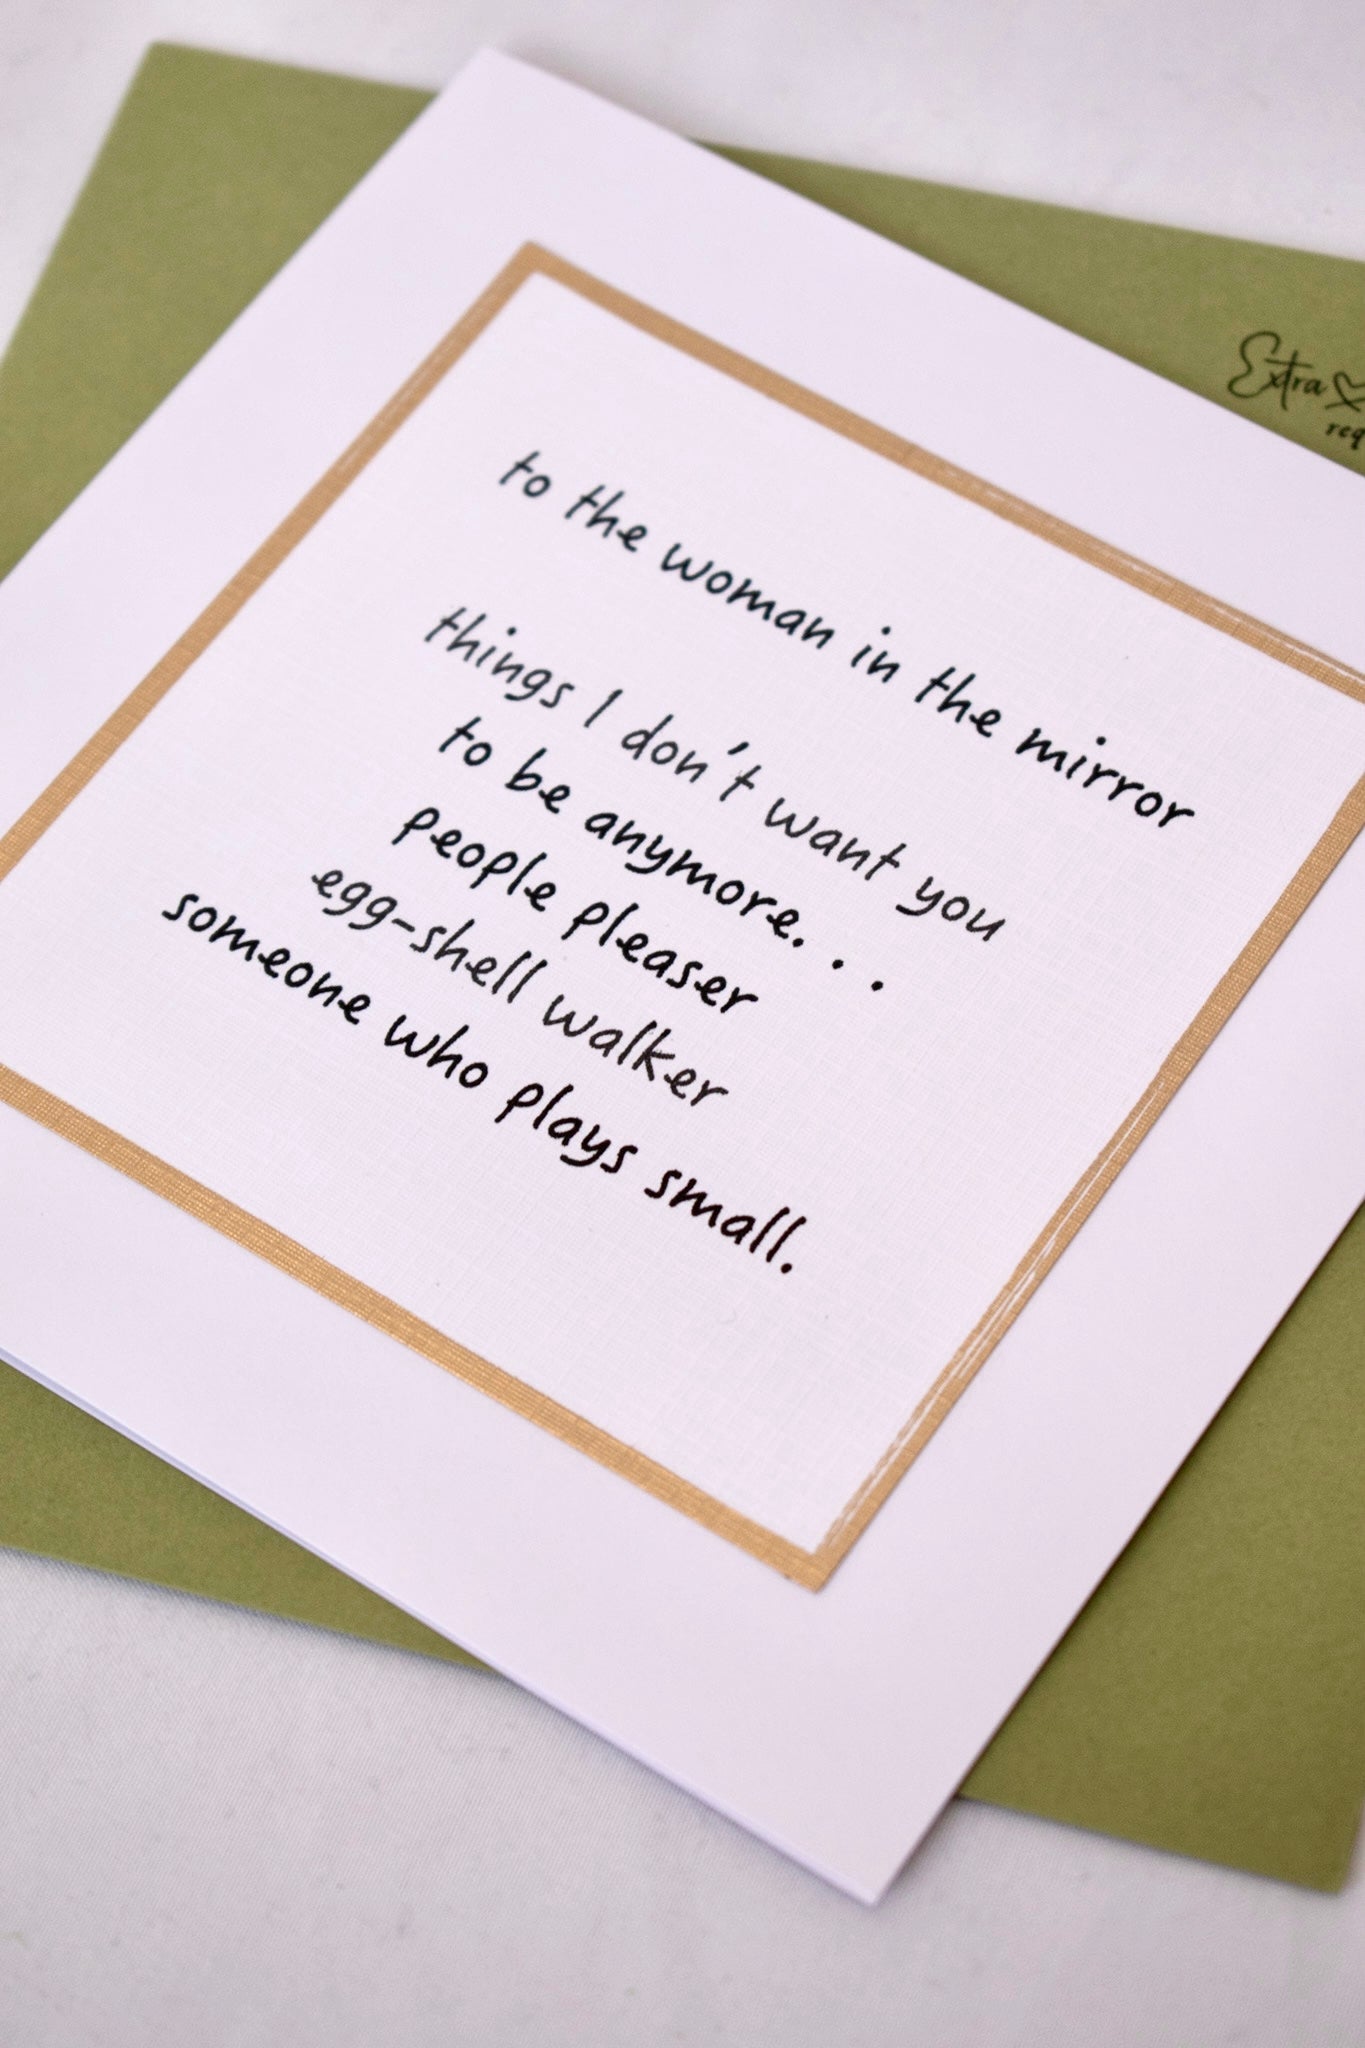 Extra
req
to the woman in the mirror
things I don't want you
to be anymore. . .
people pleaser
egg-shell walker
someone who plays small.